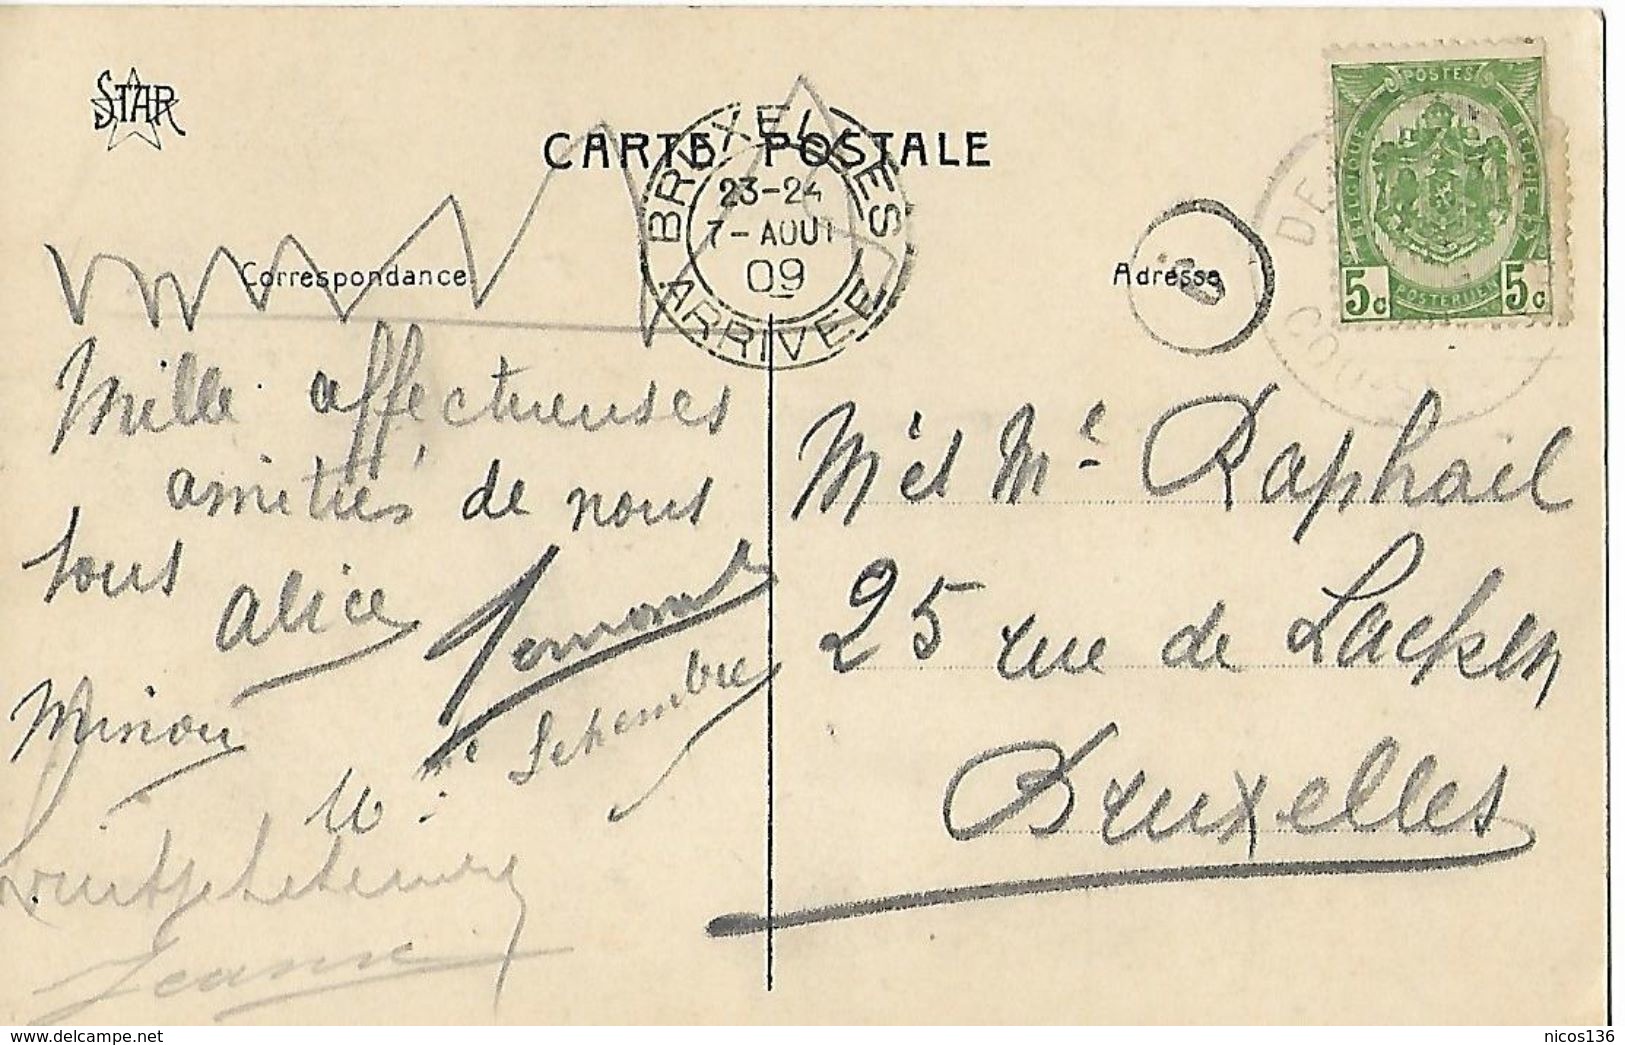 STAR
CARTE POSTALE
BRUXELLES
23-24
7-AOUT
09
ARRIVEE
Correspondance
Adresse
POSTES
BELGIQUE
BELGIE
POSTERIJEN
5c 5c
DE
COU
Mille affectueuses
amitiés de nous
tous
Alice
Minou
Mme Schembre
Jeanne
M et Me Raphaël
25 rue de Laeken
Bruxelles
delcampe.net
nicos136